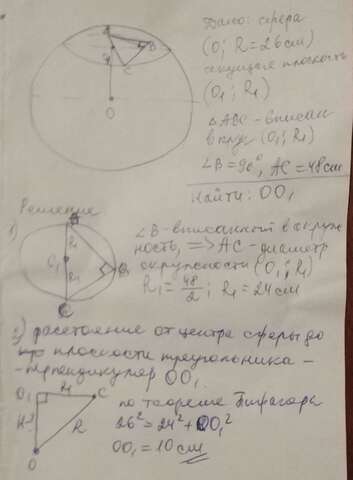 Дано: сфера
(O; R = 26 см)
секущая плоскость
(O₁; R₁)
△ABC - вписан
в круг (O₁; R₁)
∠B = 90°, AC = 48 см
Найти: OO₁
A
B
C
O₁
O
Решение
1)
A
R₁
O₁
R₁
B
C
∠B - вписанный в окруж
ность, => AC - диаметр
окружности (O₁; R₁)
R₁ = 48/2; R₁ = 24 см
2) расстояние от центра сферы до
плоскости треугольника -
- перпендикуляр OO₁
O₁
R₁
C
R
O
по теореме Пифагора
26² = 24² + OO₁²
OO₁ = 10 см